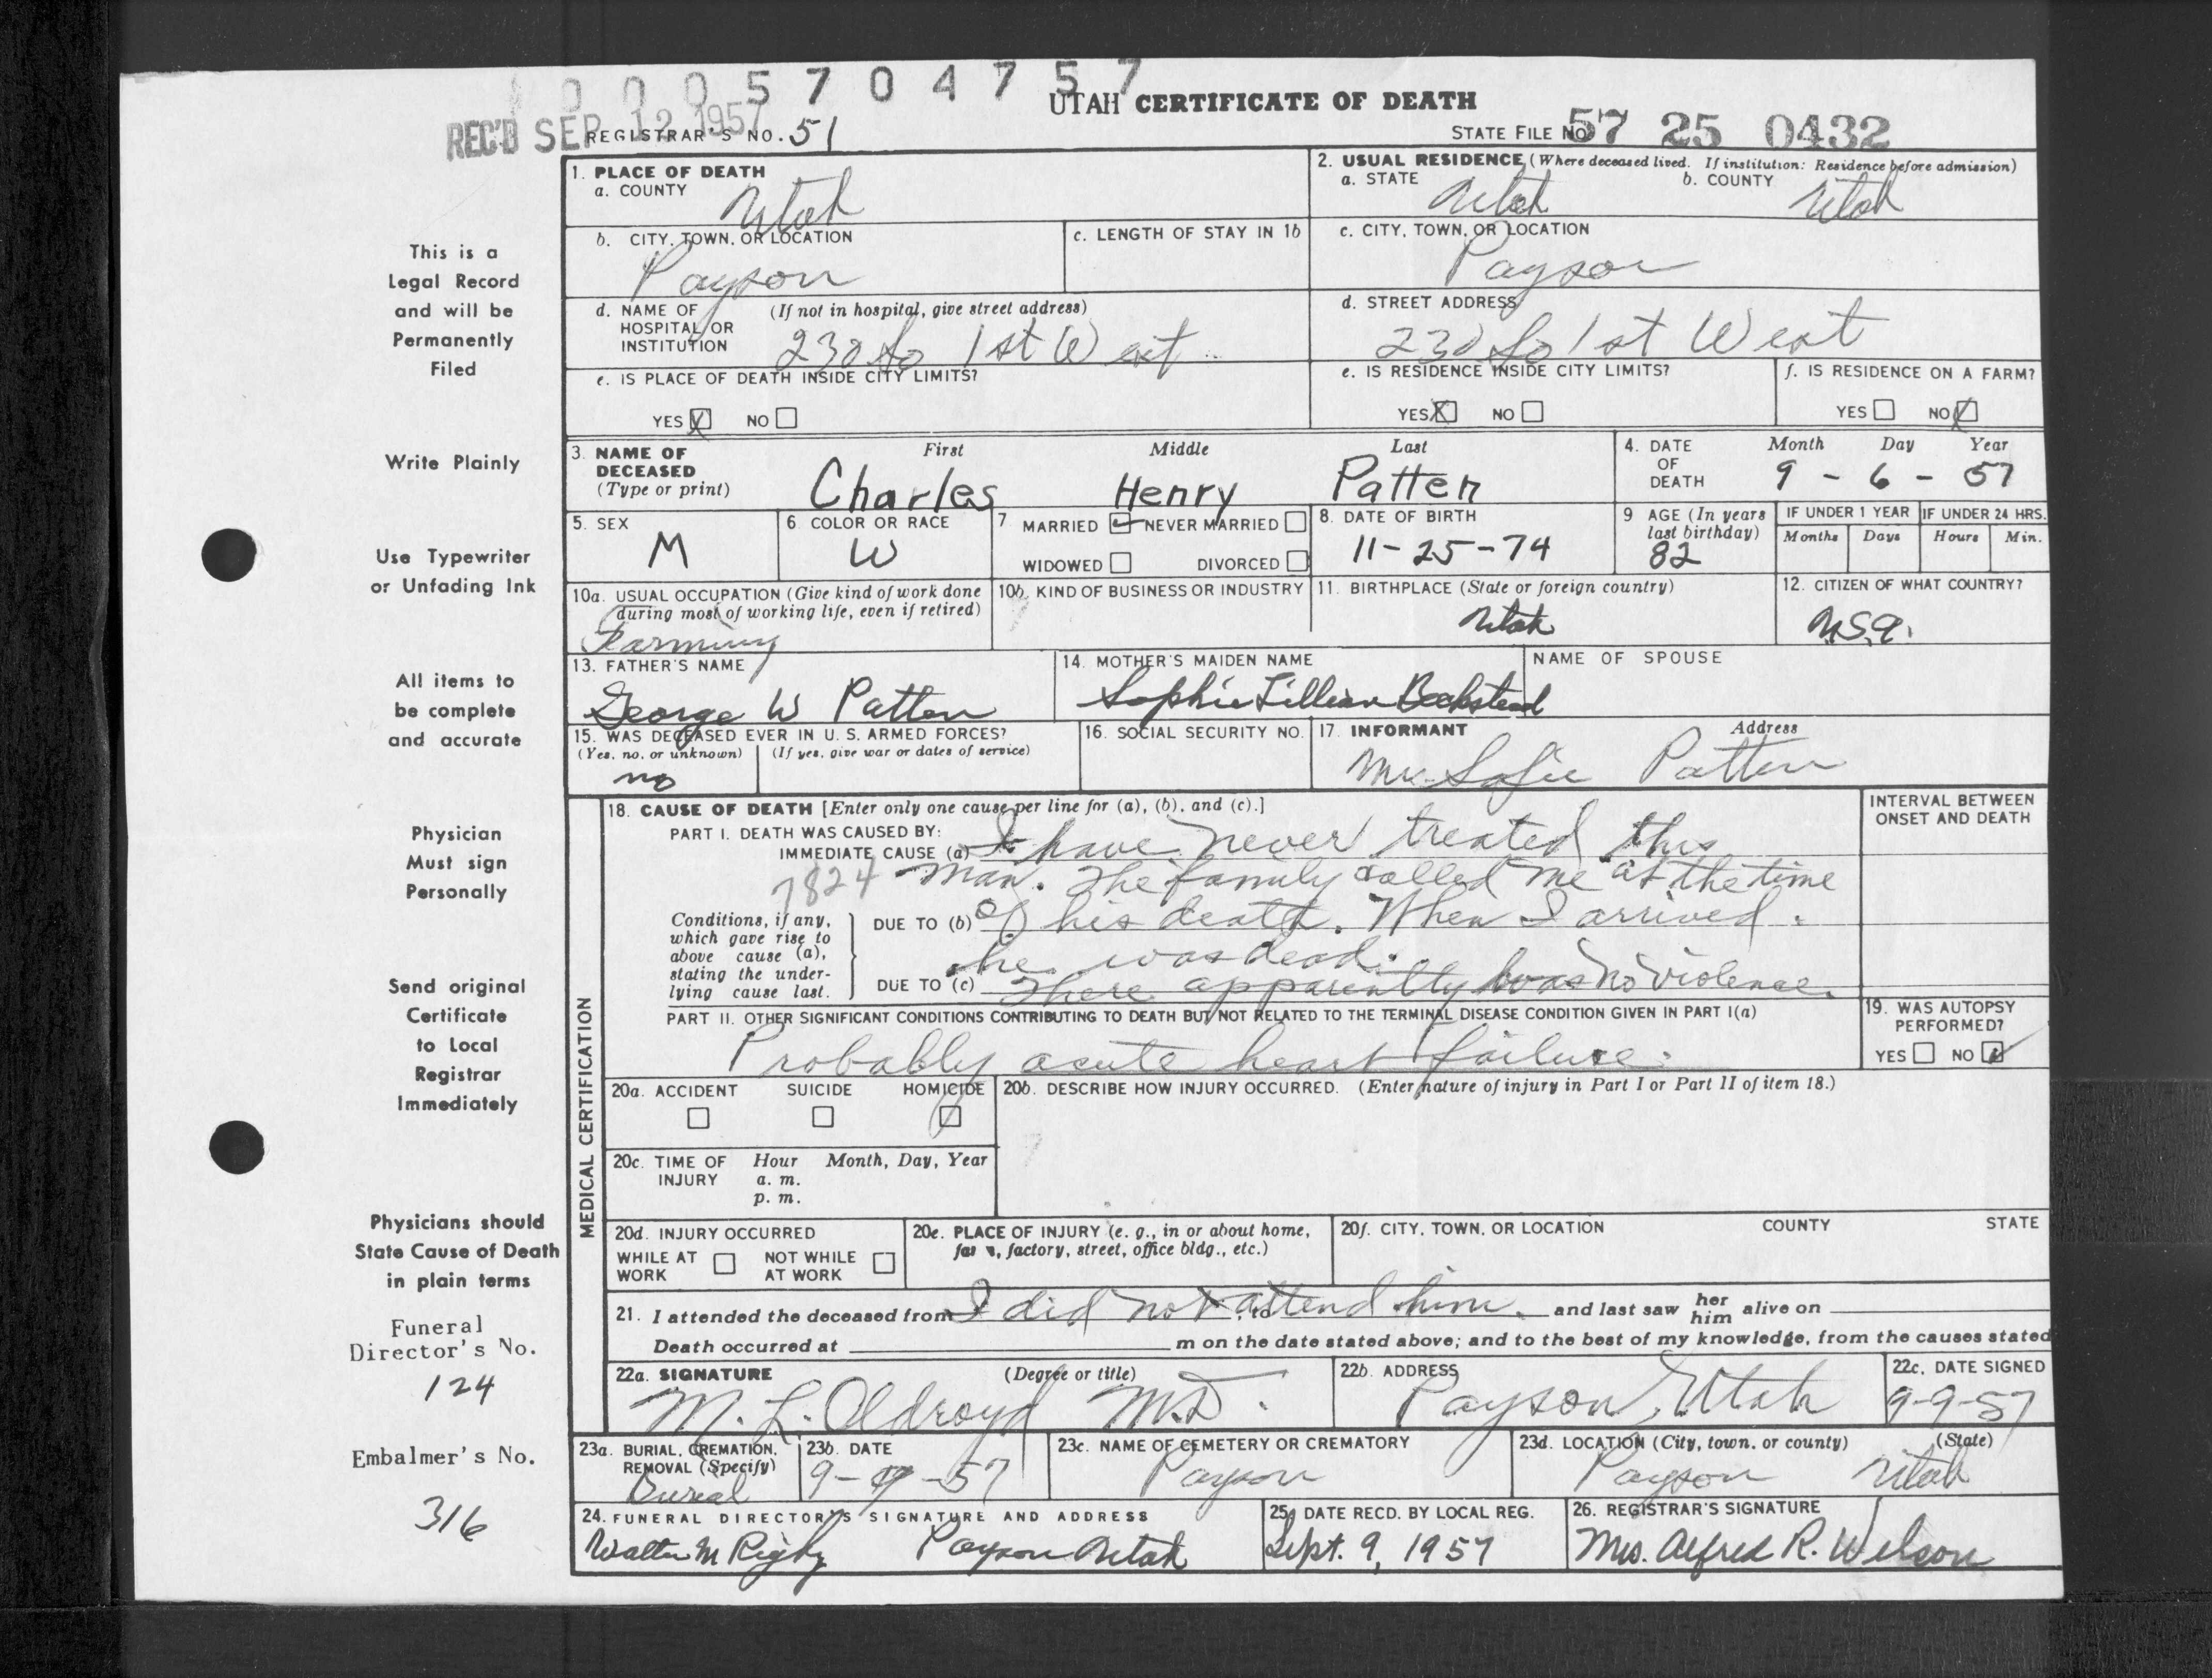 0005704757
UTAH CERTIFICATE OF DEATH
REC'D SEP 12 1957
REGISTRAR'S NO. 51
STATE FILE NO. 57 25 0432
1. PLACE OF DEATH
a. COUNTY
Utah
2. USUAL RESIDENCE (Where deceased lived. If institution: Residence before admission)
a. STATE
Utah
b. COUNTY
Utah
b. CITY, TOWN, OR LOCATION
Payson
c. LENGTH OF STAY IN 1b
c. CITY, TOWN, OR LOCATION
Payson
d. NAME OF HOSPITAL OR INSTITUTION
(If not in hospital, give street address)
230 So 1st West
d. STREET ADDRESS
230 So 1st West
e. IS PLACE OF DEATH INSIDE CITY LIMITS?
YES X NO
e. IS RESIDENCE INSIDE CITY LIMITS?
YES X NO
f. IS RESIDENCE ON A FARM?
YES NO X
3. NAME OF DECEASED
(Type or print)
First Middle Last
Charles Henry Patten
4. DATE OF DEATH
Month Day Year
9 - 6 - 57
5. SEX
M
6. COLOR OR RACE
W
7 MARRIED ✓ NEVER MARRIED
WIDOWED DIVORCED
8. DATE OF BIRTH
11-25-74
9 AGE (In years last birthday)
82
IF UNDER 1 YEAR
Months Days
IF UNDER 24 HRS.
Hours Min.
10a. USUAL OCCUPATION (Give kind of work done during most of working life, even if retired)
Farming
10b. KIND OF BUSINESS OR INDUSTRY
11. BIRTHPLACE (State or foreign country)
Utah
12. CITIZEN OF WHAT COUNTRY?
U.S.A.
13. FATHER'S NAME
George W Patten
14. MOTHER'S MAIDEN NAME
Sophie Lillian Beckstead
NAME OF SPOUSE
15. WAS DECEASED EVER IN U. S. ARMED FORCES?
(Yes, no, or unknown) (If yes, give war or dates of service)
no
16. SOCIAL SECURITY NO.
17. INFORMANT Address
Mrs. Sofie Patten
MEDICAL CERTIFICATION
18. CAUSE OF DEATH [Enter only one cause per line for (a), (b), and (c).]
INTERVAL BETWEEN ONSET AND DEATH
PART I. DEATH WAS CAUSED BY:
IMMEDIATE CAUSE (a) I have never treated this
7824 man. The family called me at the time
Conditions, if any, which gave rise to above cause (a), stating the underlying cause last.
DUE TO (b) of his death. When I arrived
he was dead.
DUE TO (c) There apparently was no violence.
PART II. OTHER SIGNIFICANT CONDITIONS CONTRIBUTING TO DEATH BUT NOT RELATED TO THE TERMINAL DISEASE CONDITION GIVEN IN PART I(a)
Probably acute heart failure.
19. WAS AUTOPSY PERFORMED?
YES NO ✓
20a. ACCIDENT SUICIDE HOMICIDE
20b. DESCRIBE HOW INJURY OCCURRED. (Enter nature of injury in Part I or Part II of item 18.)
20c. TIME OF INJURY
Hour Month, Day, Year
a. m.
p. m.
20d. INJURY OCCURRED
WHILE AT WORK NOT WHILE AT WORK
20e. PLACE OF INJURY (e. g., in or about home, farm, factory, street, office bldg., etc.)
20f. CITY, TOWN, OR LOCATION COUNTY STATE
21. I attended the deceased from I did not attend him. to and last saw her him alive on
Death occurred at m on the date stated above; and to the best of my knowledge, from the causes stated
22a. SIGNATURE (Degree or title)
M. L. Oldroyd M.D.
22b. ADDRESS
Payson, Utah
22c. DATE SIGNED
9-9-57
23a. BURIAL, CREMATION, REMOVAL (Specify)
Burial
23b. DATE
9-9-57
23c. NAME OF CEMETERY OR CREMATORY
Payson
23d. LOCATION (City, town, or county) (State)
Payson Utah
24. FUNERAL DIRECTOR'S SIGNATURE AND ADDRESS
Walter M Rigby Payson Utah
25. DATE RECD. BY LOCAL REG.
Sept. 9, 1957
26. REGISTRAR'S SIGNATURE
Mrs. Alfred R. Wilson
This is a
Legal Record
and will be
Permanently
Filed
Write Plainly
Use Typewriter
or Unfading Ink
All items to
be complete
and accurate
Physician
Must sign
Personally
Send original
Certificate
to Local
Registrar
Immediately
Physicians should
State Cause of Death
in plain terms
Funeral
Director's No.
124
Embalmer's No.
316